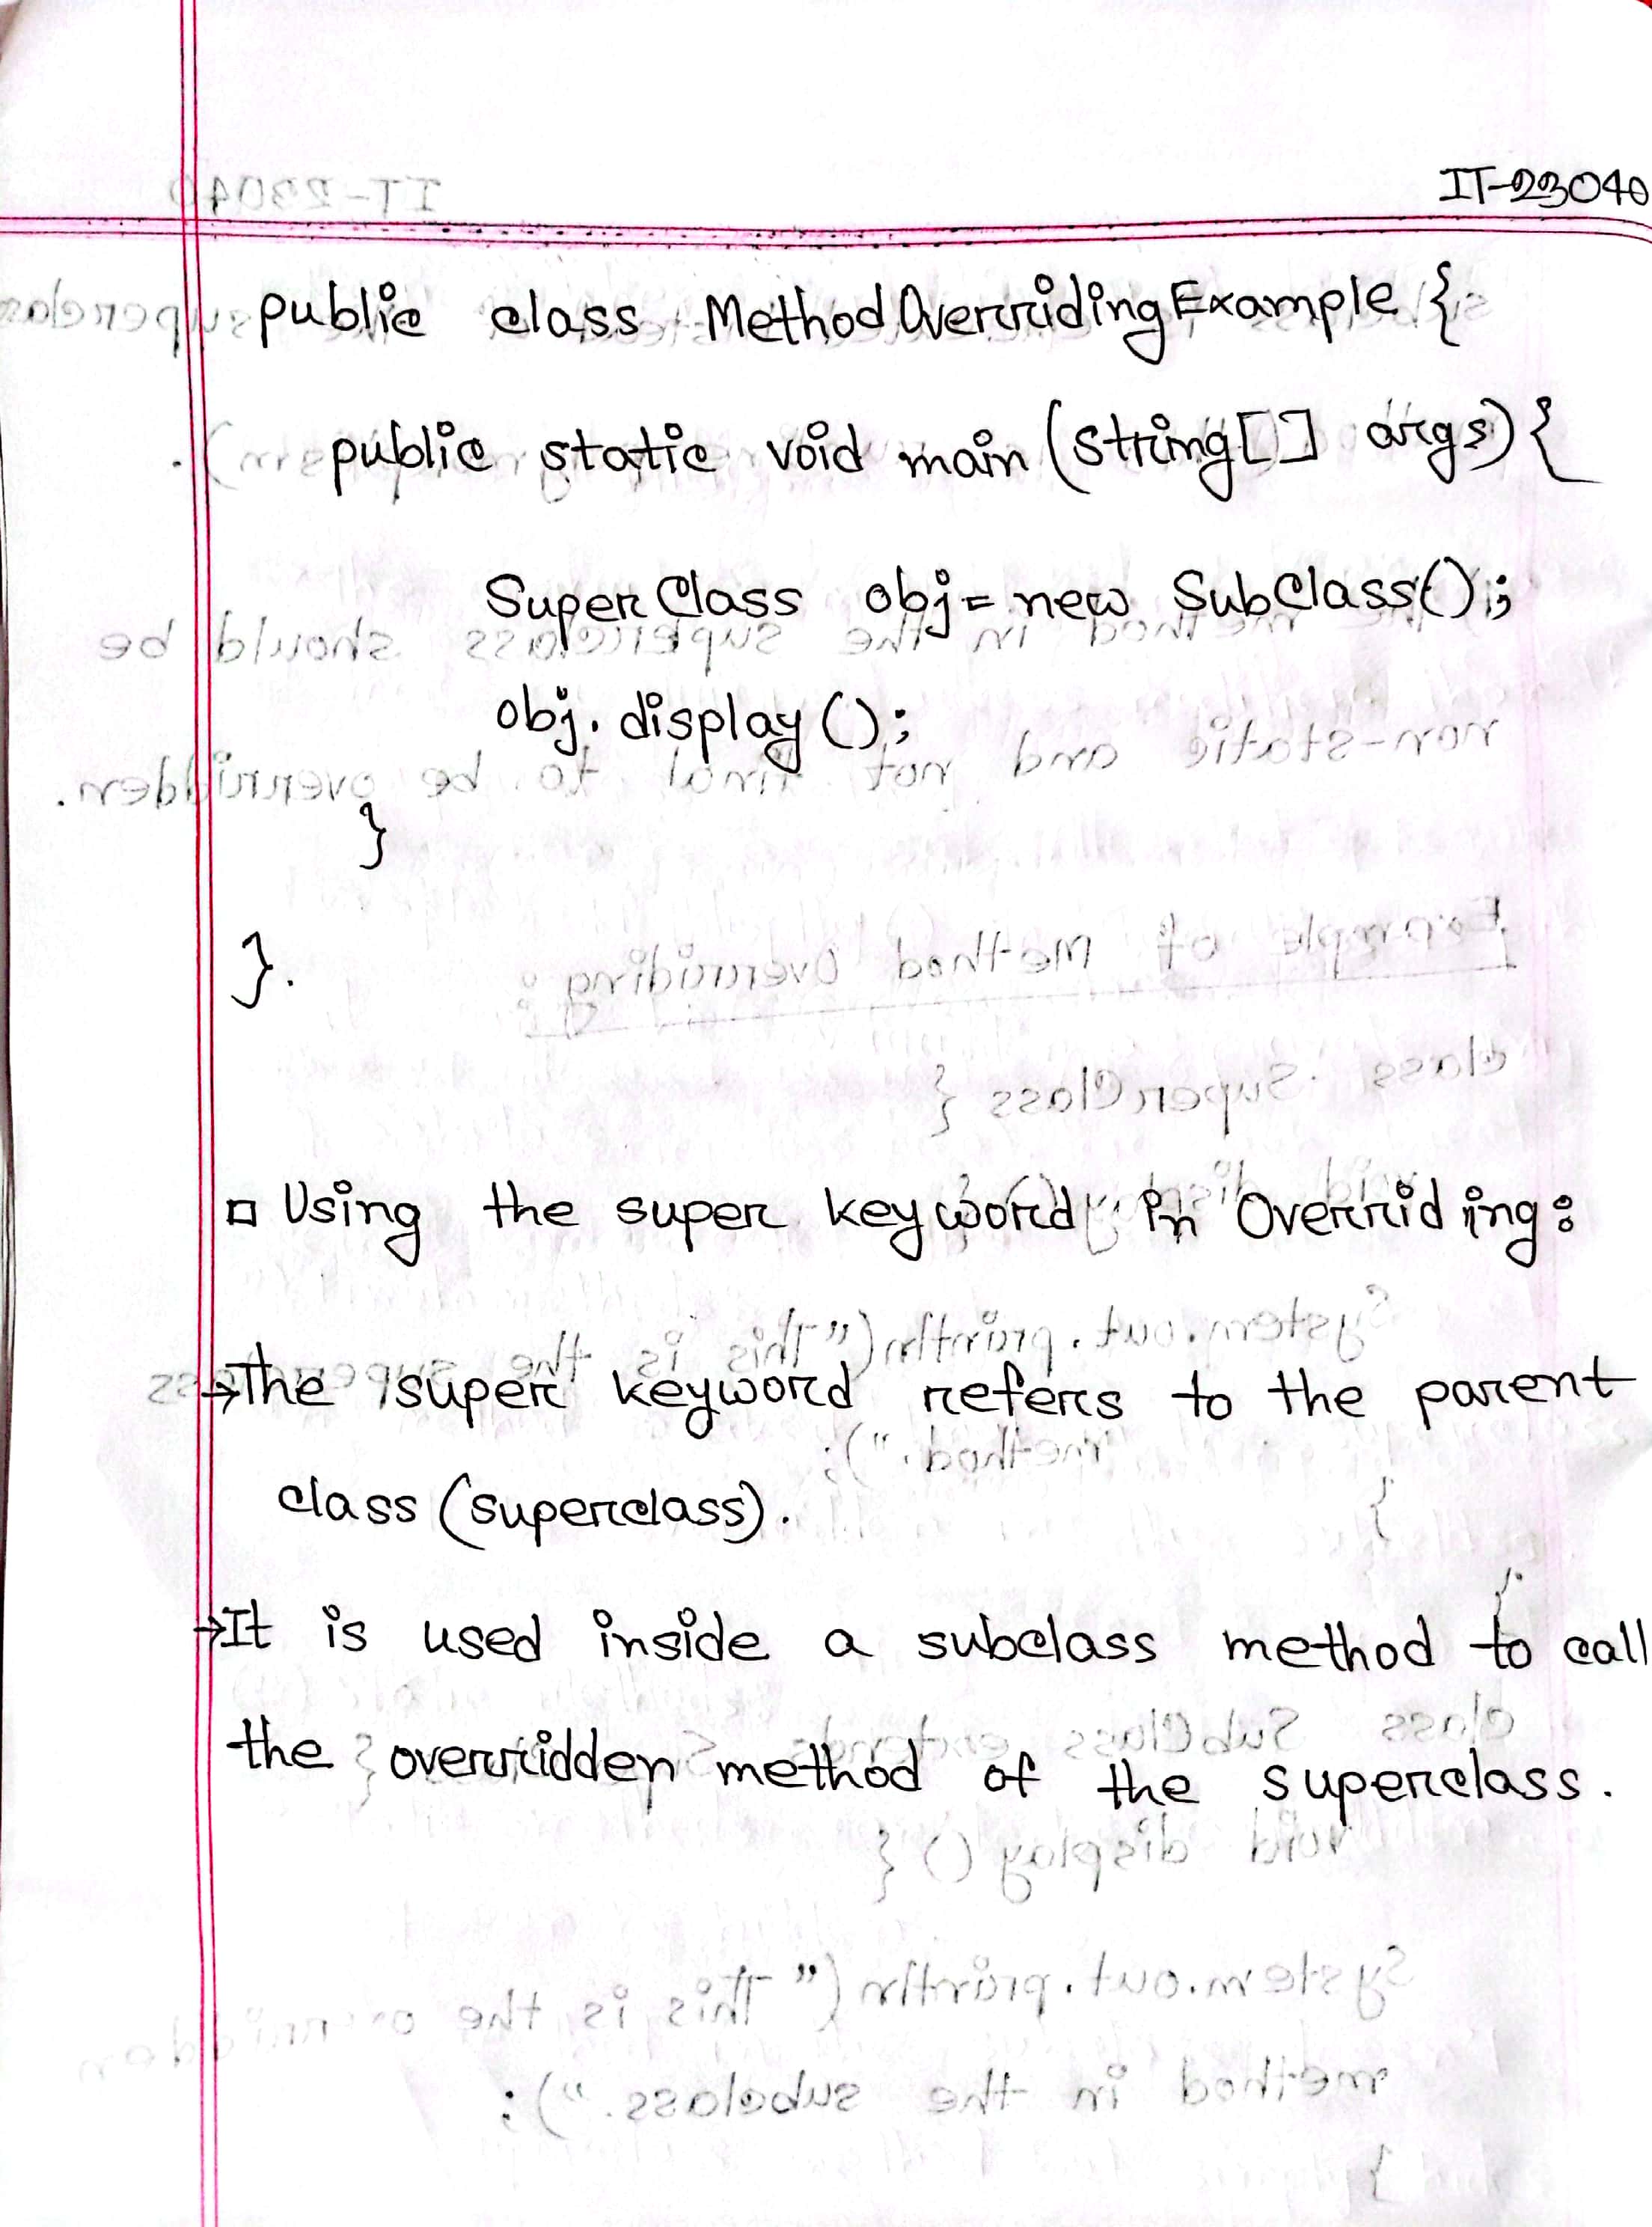 IT-23040
public class MethodOverridingExample {
public static void main (string[] args) {
SuperClass obj = new SubClass();
obj. display ();
}
}.
□ Using the super keyword in Overriding:
→The super keyword refers to the parent
class (superclass).
→It is used inside a subclass method to call
the overridden method of the superclass.